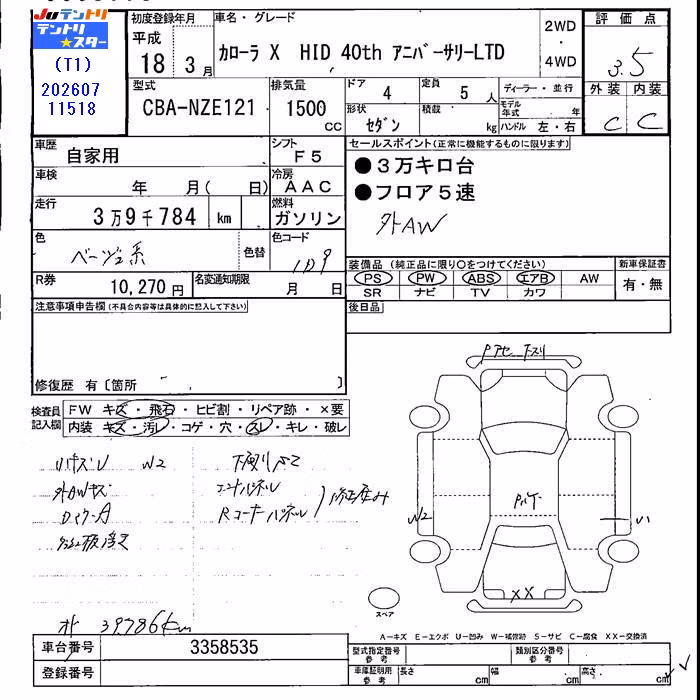 Juテントリ
テントリ★スター
(T1)
202607
11518
初度登録年月
平成
18 3月
車名・グレード
カローラ X HID 40th アニバーサリーLTD
2WD
・
4WD
評価点
3.5
外装 内装
C C
型式
CBA-NZE121
排気量
1500
cc
ドア 4
定員 5人
形状 セダン
積載 kg
ディーラー・並行
モデル年式 年
ハンドル 左・右
車歴
自家用
シフト
F5
車検
年 月( 日)
冷房
AAC
走行
3万9千784 km
燃料
ガソリン
色
ベージュ系
色替
色コード
R券
10,270円
名変通知期限
月 日
セールスポイント(正常に機能するものに限ります)
●3万キロ台
●フロア5速
外AW
装備品 (純正品に限り○をつけてください)
PS PW ABS エアB AW
SR ナビ TV カワ
新車保証書
有・無
後日品
注意事項申告欄(不具合内容等は具体的に記入して下さい)
修復歴 有〔箇所 〕
検査員記入欄
FW キズ・飛石・ヒビ割・リペア跡・×要
内装 キズ・汚レ・コゲ・穴・スレ・キレ・破レ
W2
外AWキズ
コーナーパネル
Rコーナーパネル
39786km
W2
XX
スペア
A－キズ E－エクボ U－凹み W－補修跡 S－サビ C－腐食 XX－交換済
車台番号
3358535
登録番号
型式指定番号
参考
類別区分番号
参考
車庫証明用
参考
長さ cm
幅 cm
高さ cm